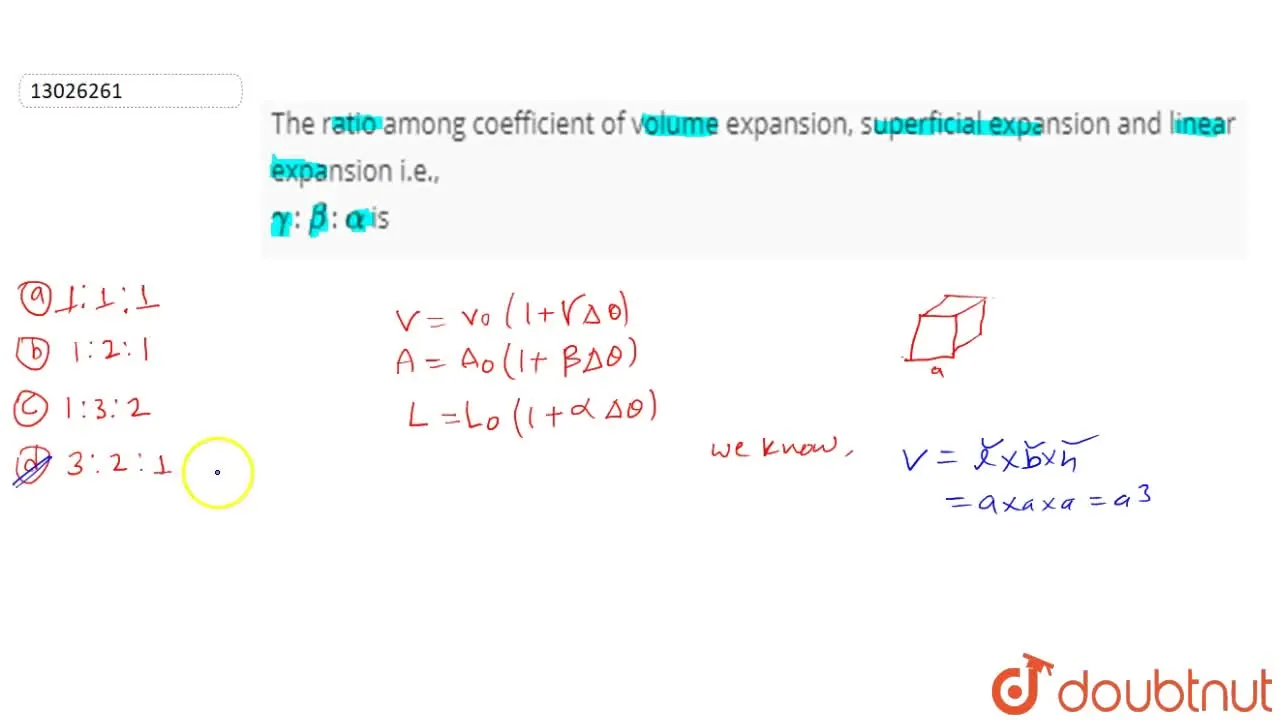 13026261
The ratio among coefficient of volume expansion, superficial expansion and linear
expansion i.e.,
γ : β : α is
(a) 1:1:1
(b) 1:2:1
(c) 1:3:2
(d) 3:2:1
V = V0 (1+γΔθ)
A = A0 (1+βΔθ)
L = L0 (1+αΔθ)
a
we know,
V = l×b×h
= a×a×a = a³
doubtnut